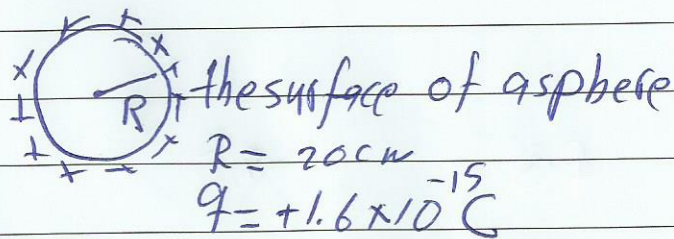 R
the surface of a sphere
R = 20cm
q = +1.6×10⁻¹⁵C